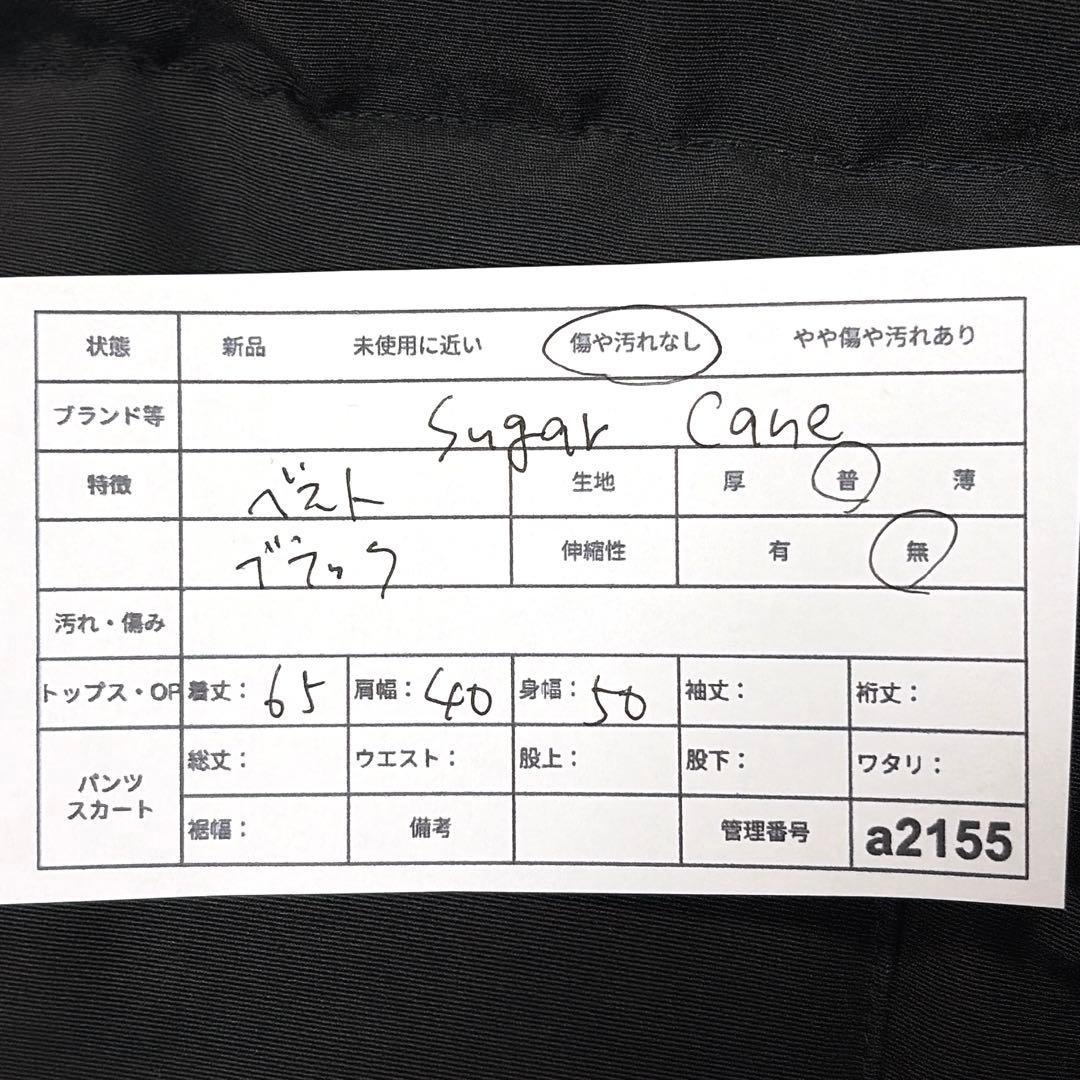 状態 新品 未使用に近い 傷や汚れなし やや傷や汚れあり
ブランド等 Sugar Cane
特徴 ベスト 生地 厚 普 薄
ブラック 伸縮性 有 無
汚れ・傷み
トップス・OP 着丈：65 肩幅：40 身幅：50 袖丈： 裄丈：
パンツ スカート 総丈： ウエスト： 股上： 股下： ワタリ：
裾幅： 備考 管理番号 a2155